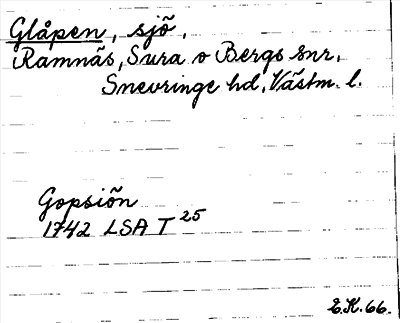 Glåpen, sjö,
Ramnäs, Sura o Bergs snr,
Snevringe hd, Västm. l.
Gopsiön
1742 LSA T 25
E.H. 66.